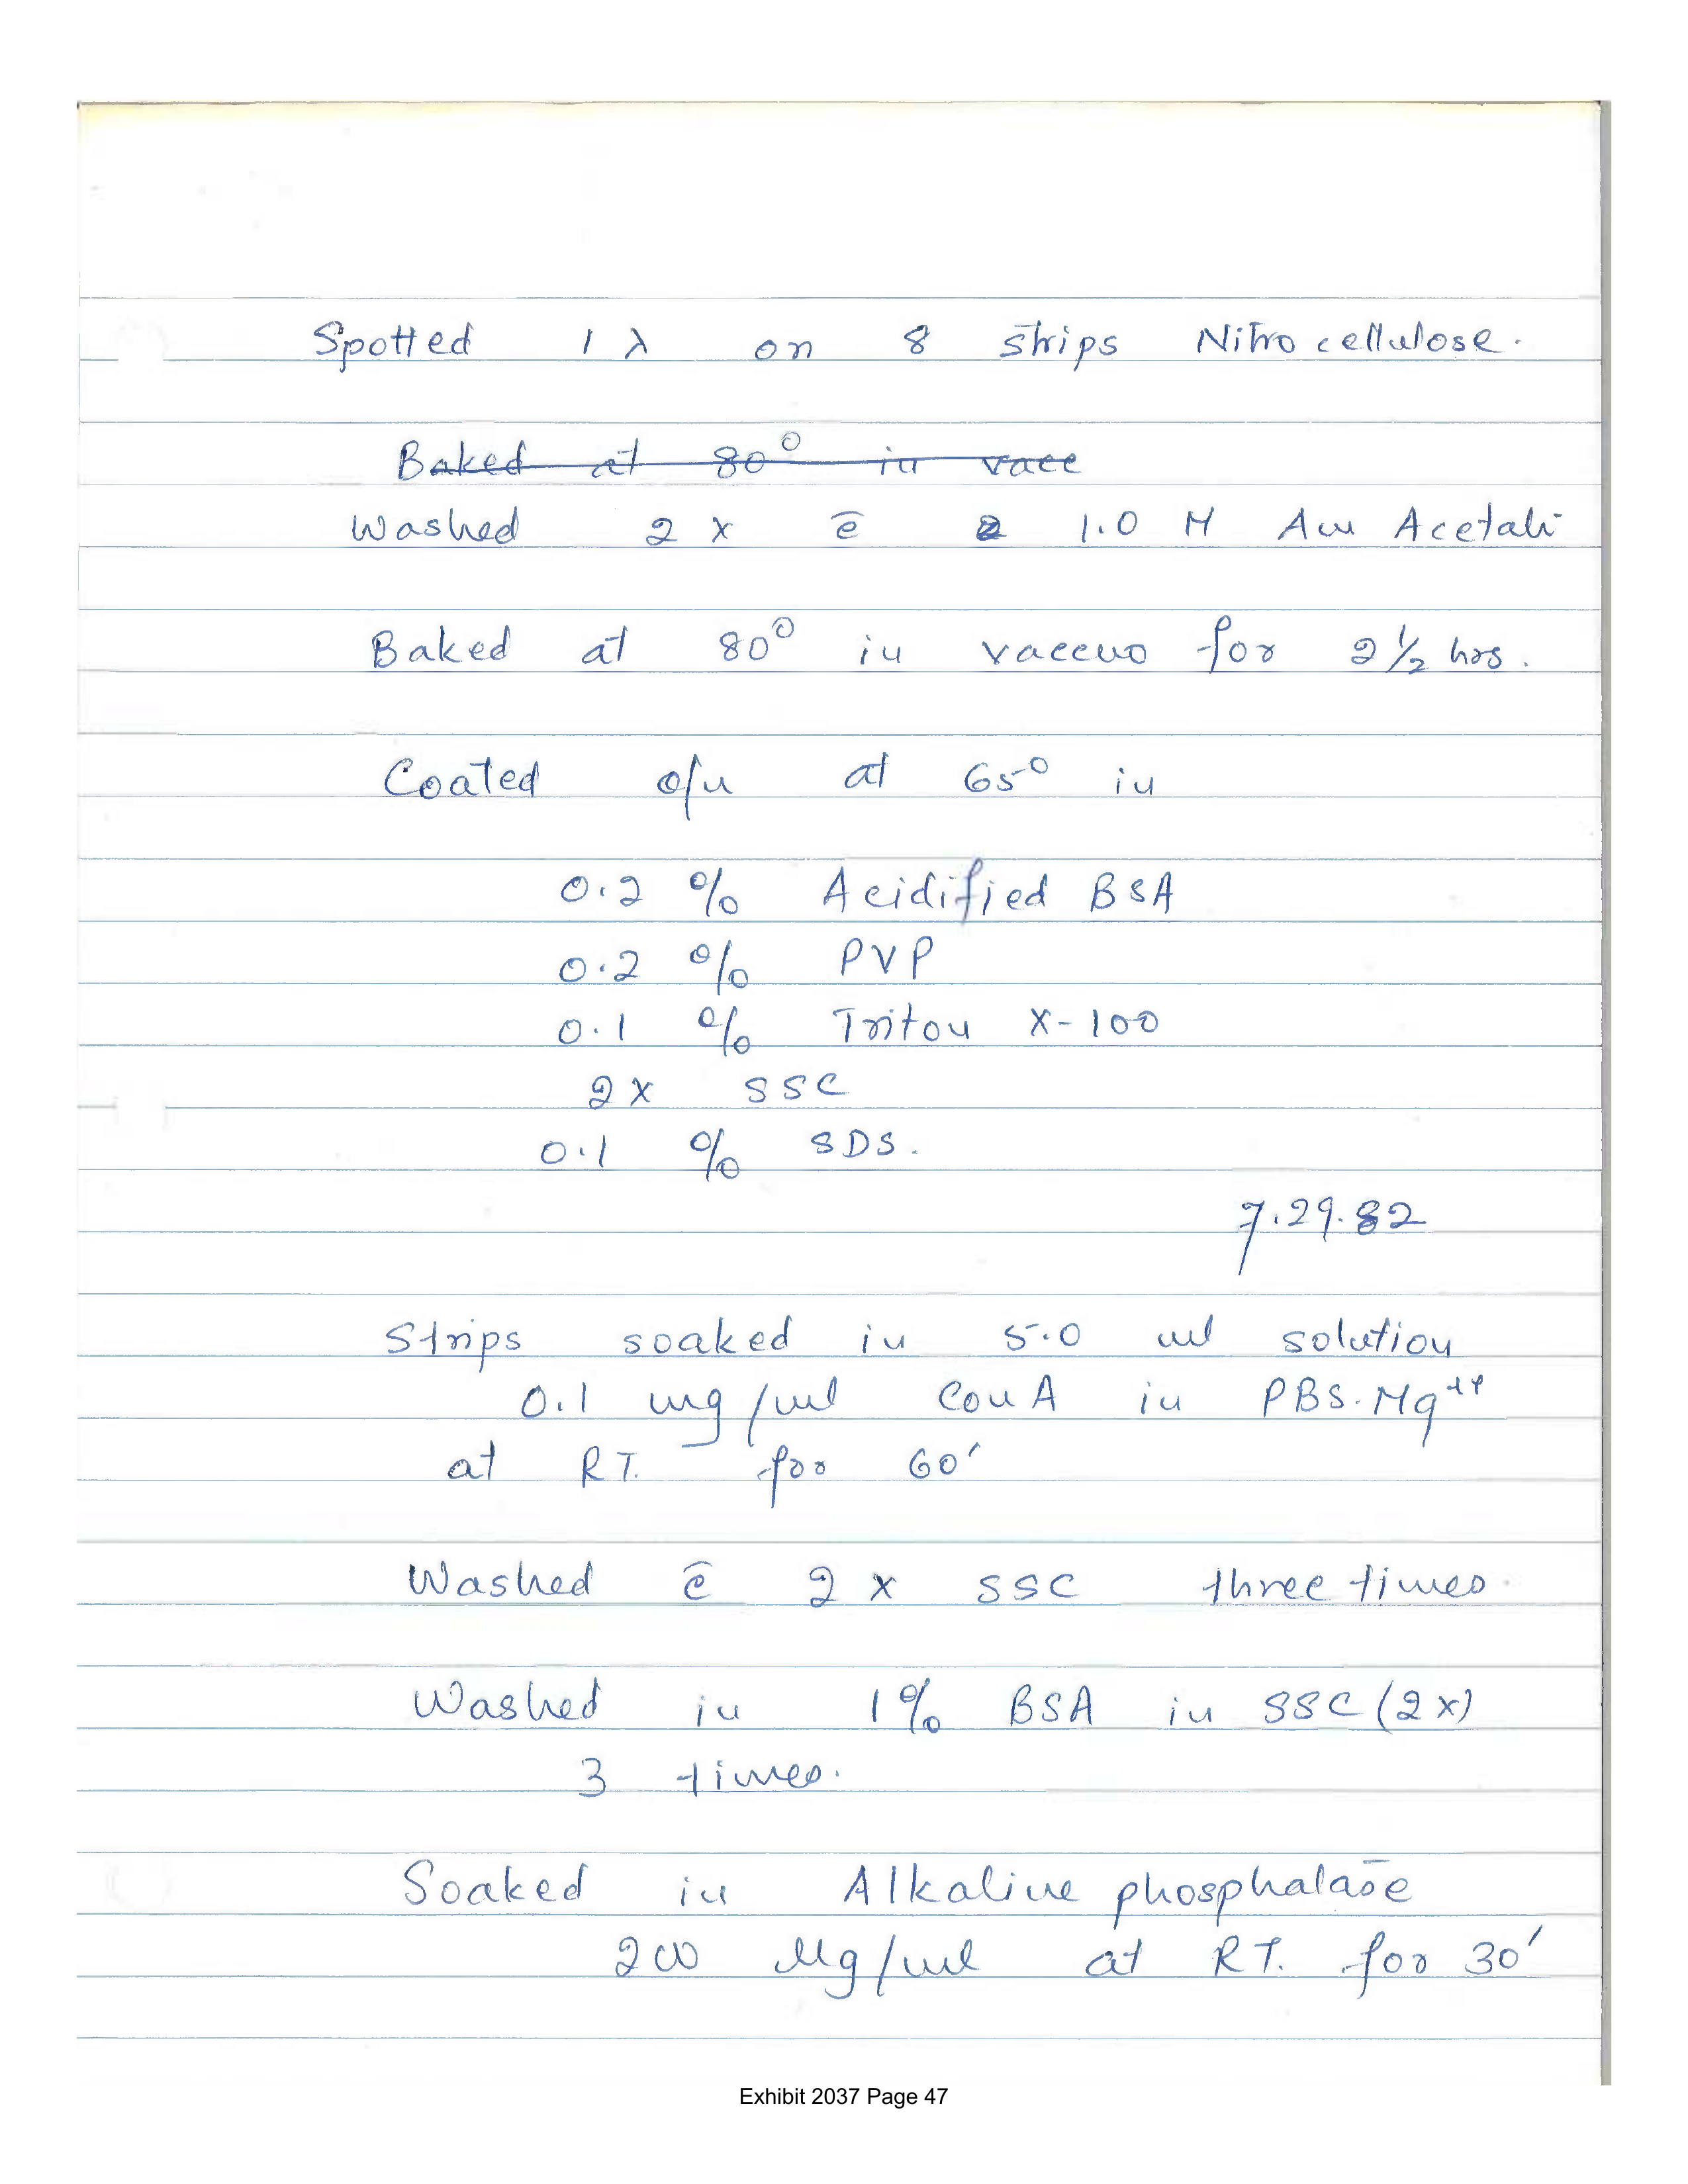 Spotted 1 λ on 8 strips Nitrocellulose.
Baked at 80° in vacc
Washed 2 x c̄ 1.0 M Am Acetate
Baked at 80° in vaccuo for 2 1/2 hrs.
Coated o/n at 65° in
0.2 % Acidified BSA
0.2 % PVP
0.1 % Triton X-100
2x SSC
0.1 % SDS.
7.29.82
Strips soaked in 5.0 ml solution
0.1 mg/ml Con A in PBS. Mg++
at RT. for 60'
Washed c̄ 2 x SSC three times.
Washed in 1% BSA in SSC (2x)
3 times.
Soaked in Alkaline phosphatase
200 µg/ml at RT. for 30'
Exhibit 2037 Page 47